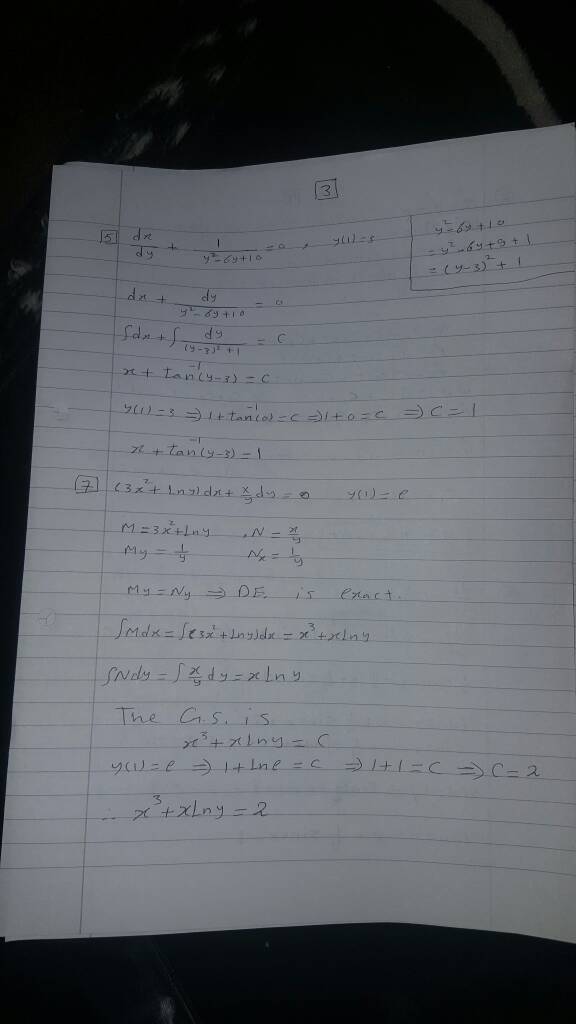 3
5 dx/dy + 1/(y² - 6y + 10) = 0 , y(1) = 3
y² - 6y + 10
= y² - 6y + 9 + 1
= (y-3)² + 1
dx + dy/(y² - 6y + 10) = 0
∫dx + ∫ dy/((y-3)² + 1) = C
x + tan⁻¹(y-3) = C
y(1) = 3 ⇒ 1 + tan⁻¹(0) = C ⇒ 1 + 0 = C ⇒ C = 1
x + tan⁻¹(y-3) = 1
7 (3x² + Lny)dx + x/y dy = 0 y(1) = e
M = 3x² + Lny , N = x/y
My = 1/y Nx = 1/y
My = Ny ⇒ DE. is exact.
∫Mdx = ∫(3x² + Lny)dx = x³ + xLny
∫Ndy = ∫ x/y dy = x Lny
The G.S. is
x³ + xLny = C
y(1) = e ⇒ 1 + Lne = C ⇒ 1 + 1 = C ⇒ C = 2
∴ x³ + xLny = 2